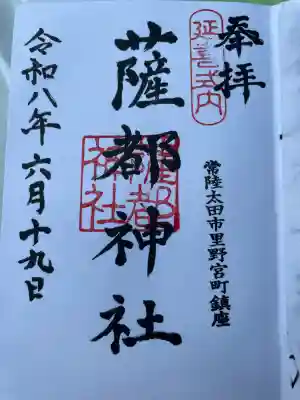 奉拝
延喜式内
常陸太田市里野宮町鎮座
薩都神社
薩都神社
令和八年六月十九日